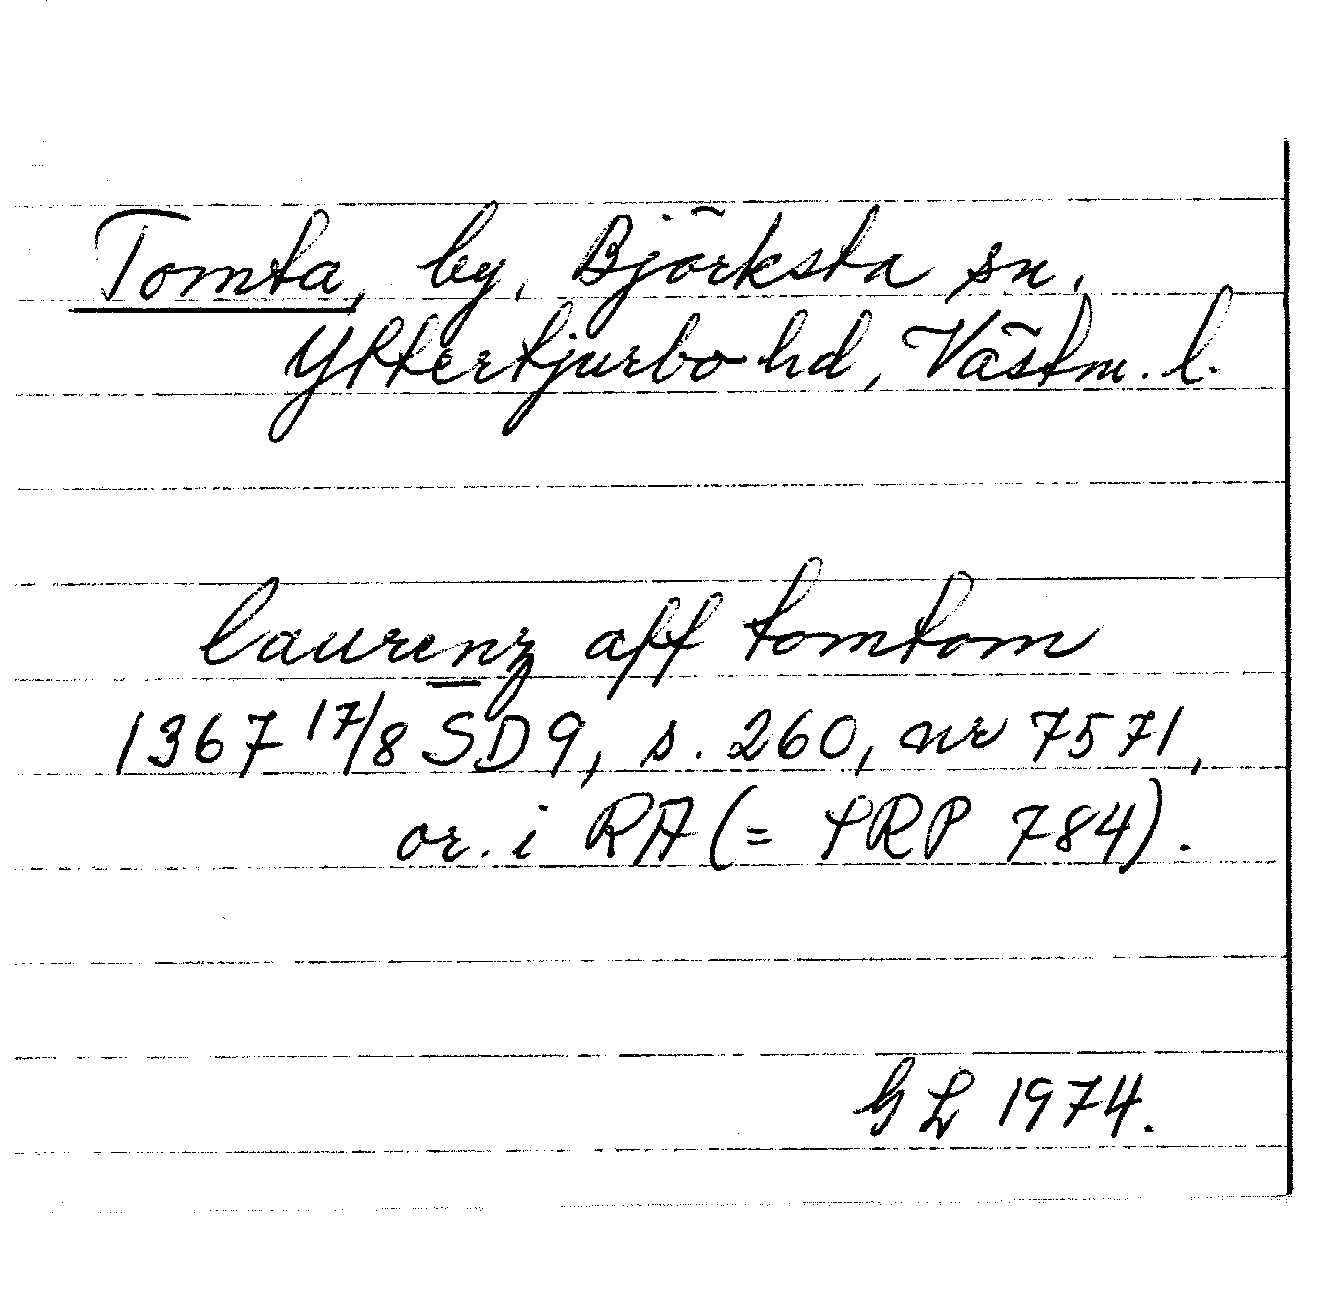 Tomta, by, Björksta sn,
Yttertjurbo hd, Västm. l.
laurenz aff tomtom
1367 17/8 SD 9, s. 260, nr 7571,
or. i RA (= SRP 784).
GL 1974.